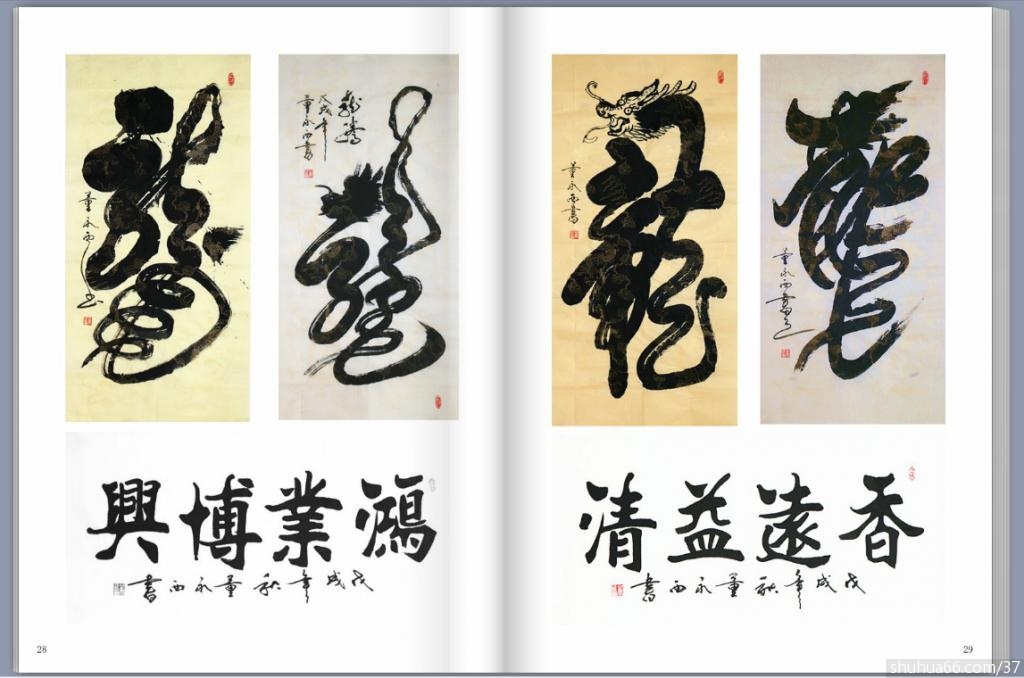 龍
董永西書
龍騰
戊戌年
董永西書
龍
龍
董永西書
龍
董永西書
鴻業博興
戊戌年秋董永西書
香遠益清
戊戌年秋董永西書
28
29
shuhua66.com/37